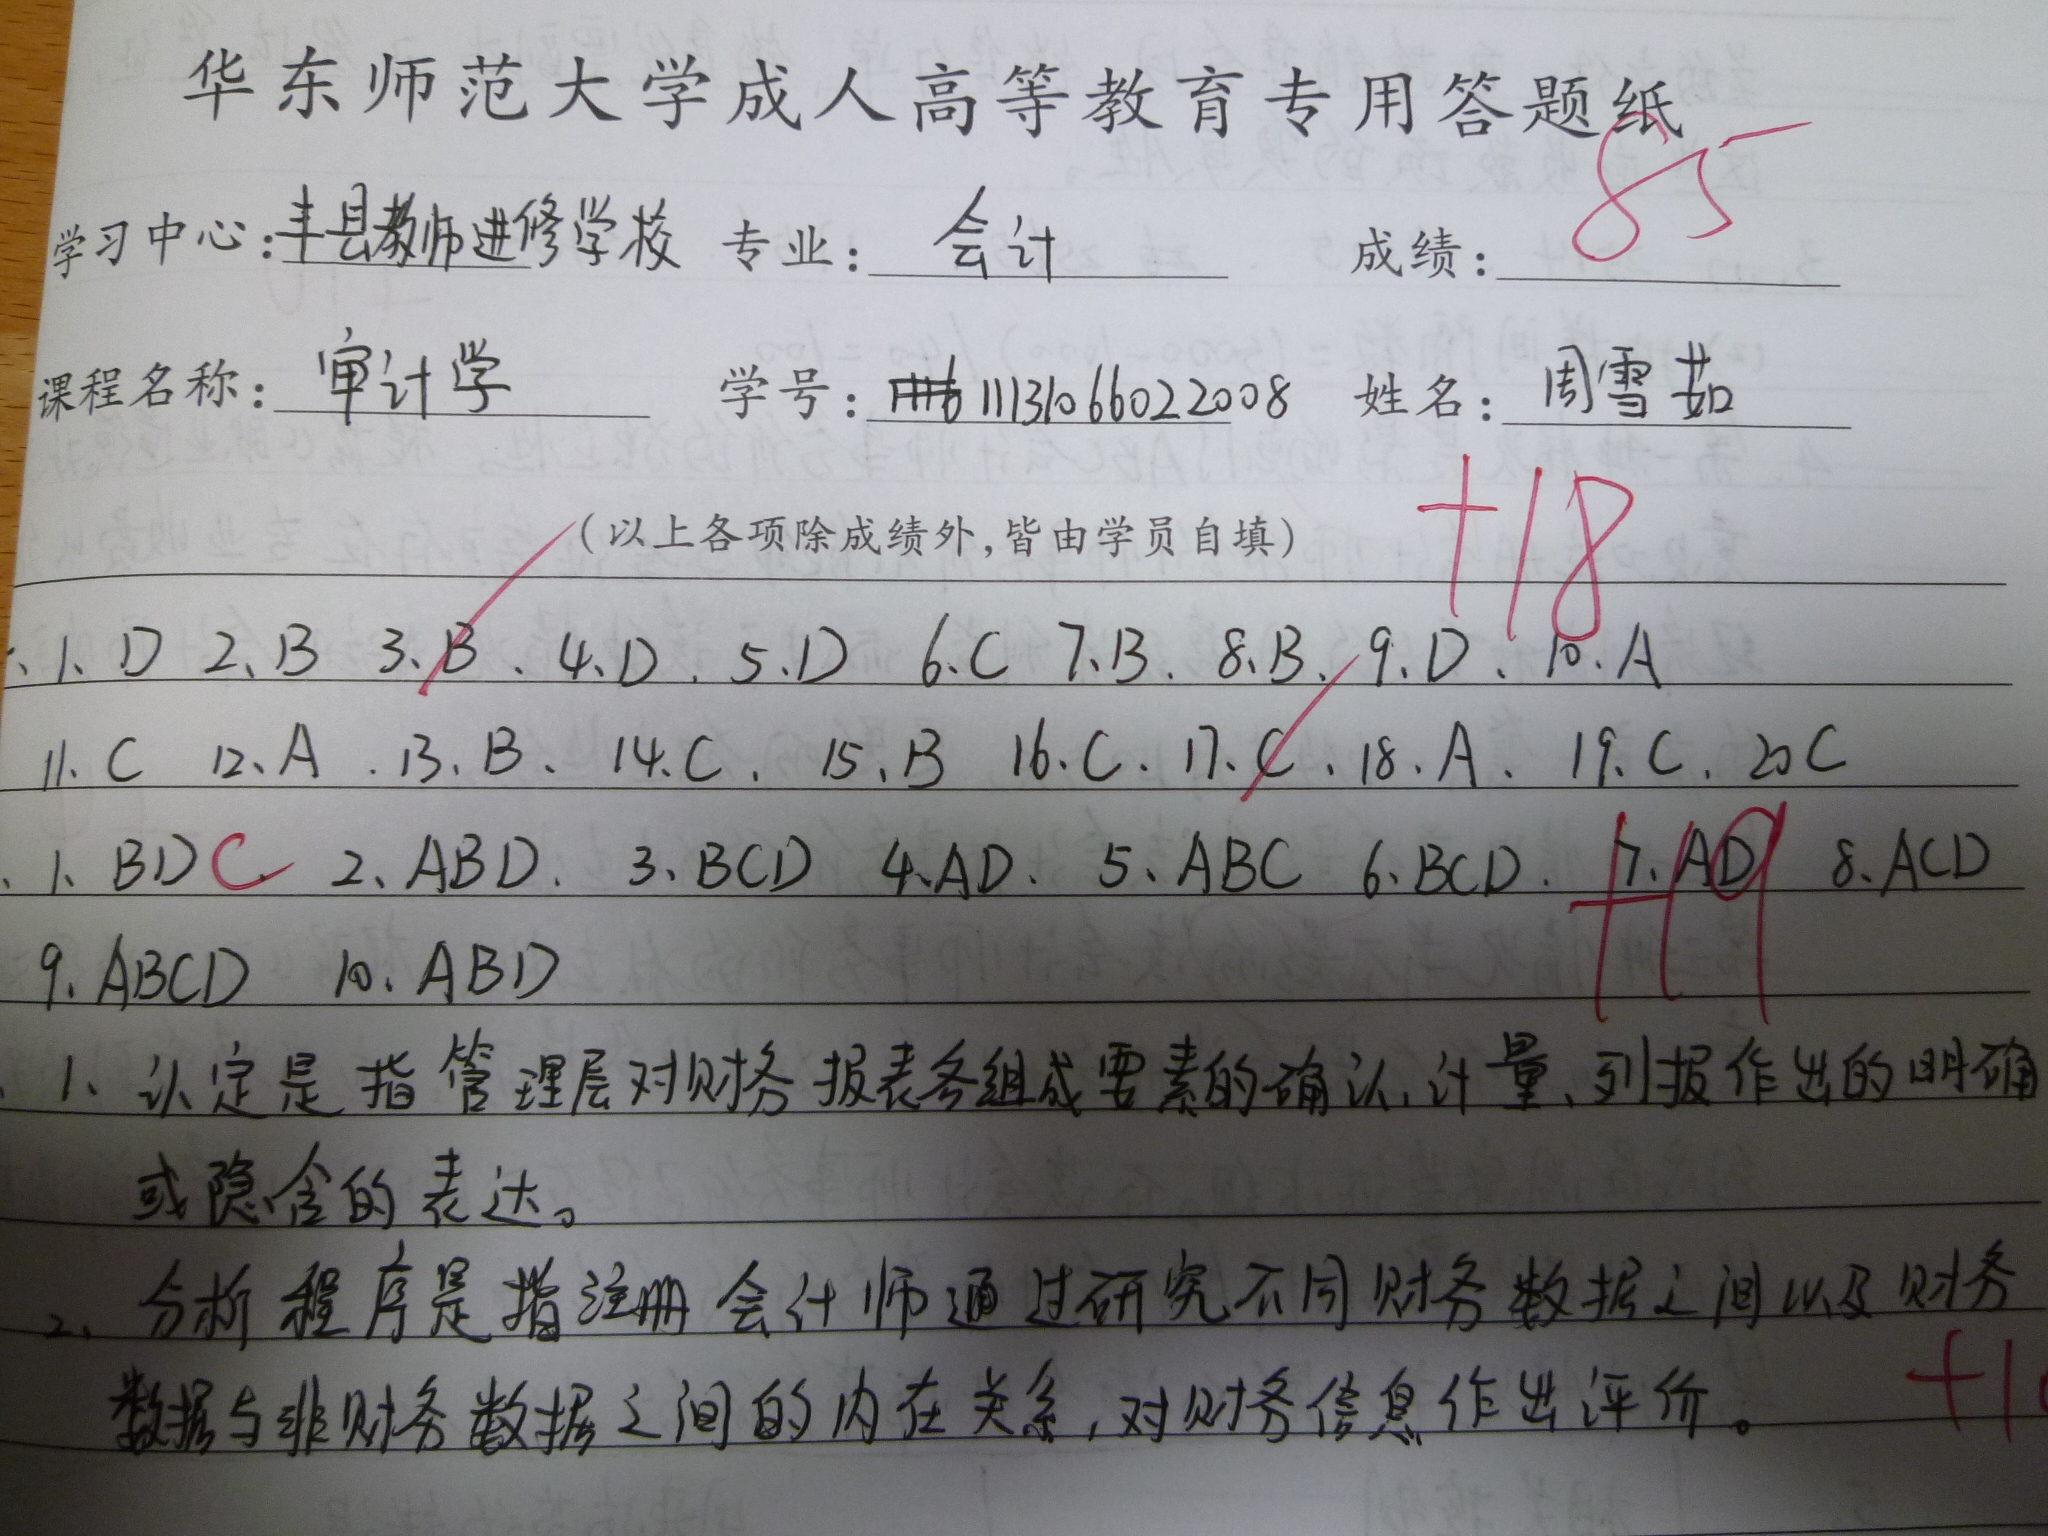 华东师范大学成人高等教育专用答题纸
85
学习中心:丰县教师进修学校 专业:会计 成绩:
课程名称:审计学 学号:11131066022008 姓名:周雪茹
(以上各项除成绩外,皆由学员自填)
+18
1、D 2、B 3、B、4、D、5、D 6、C 7、B、8、B、9、D、10、A
11、C 12、A、13、B、14、C、15、B 16、C、17、C、18、A、19、C、20 C
1、BD C 2、ABD、3、BCD 4、AD、5、ABC 6、BCD、7、AD 8、ACD
+19
9、ABCD 10、ABD
1、认定是指管理层对财务报表各组成要素的确认、计量、列报作出的明确
或隐含的表达。
2、分析程序是指注册会计师通过研究不同财务数据之间以及财务
数据与非财务数据之间的内在关系,对财务信息作出评价。